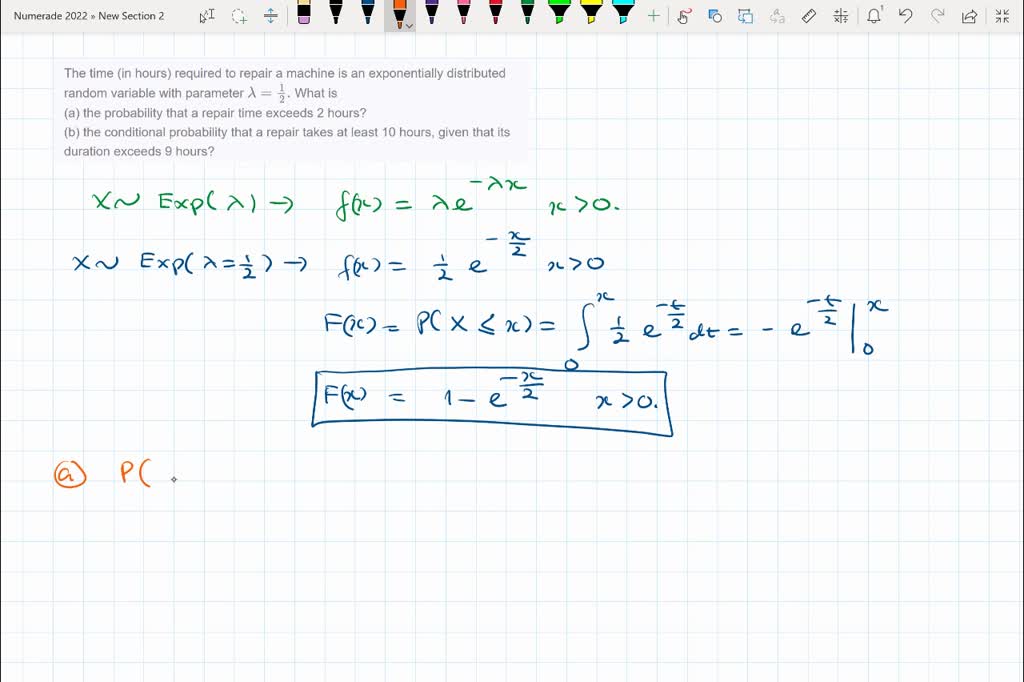 Numerade 2022 » New Section 2
The time (in hours) required to repair a machine is an exponentially distributed
random variable with parameter λ = 1/2. What is
(a) the probability that a repair time exceeds 2 hours?
(b) the conditional probability that a repair takes at least 10 hours, given that its
duration exceeds 9 hours?
X ~ Exp(λ) → f(x) = λe^{-λx} x>0.
X ~ Exp(λ=1/2) → f(x) = 1/2 e^{-x/2} x>0
F(x) = P(X ≤ x) = ∫_0^x 1/2 e^{-t/2} dt = - e^{-t/2} |_0^x
F(x) = 1 - e^{-x/2} x>0.
(a) P(